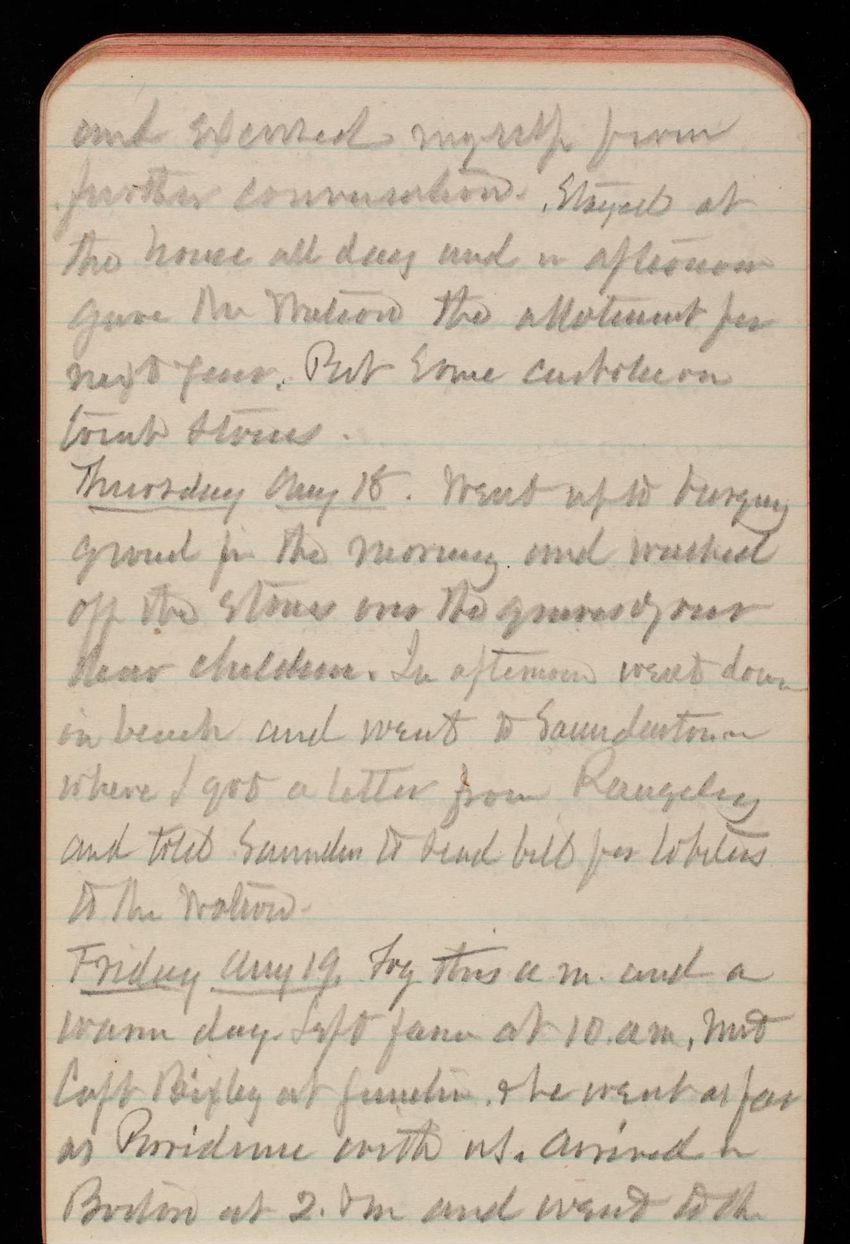 and excused myself from
further conversation. Stayed at
the house all day and in afternoon
gave Mr Watson the allotment for
next year. Put some on
tomb stones.
Thursday Aug 18. Went up to burying
ground in the morning and washed
off the stones over the graves of our
dear children. In afternoon went down
in beach and went to Saunderstown
where I got a letter from Rangeley
and told Saunders to send bill for lobsters
to Mr Watson.
Friday Aug 19. Fog this a m. and a
warm day. Left farm at 10. a m, met
Capt Bixley at Junction. & he went as far
as Providence with us. Arrived in
Boston at 2. P m and went to the